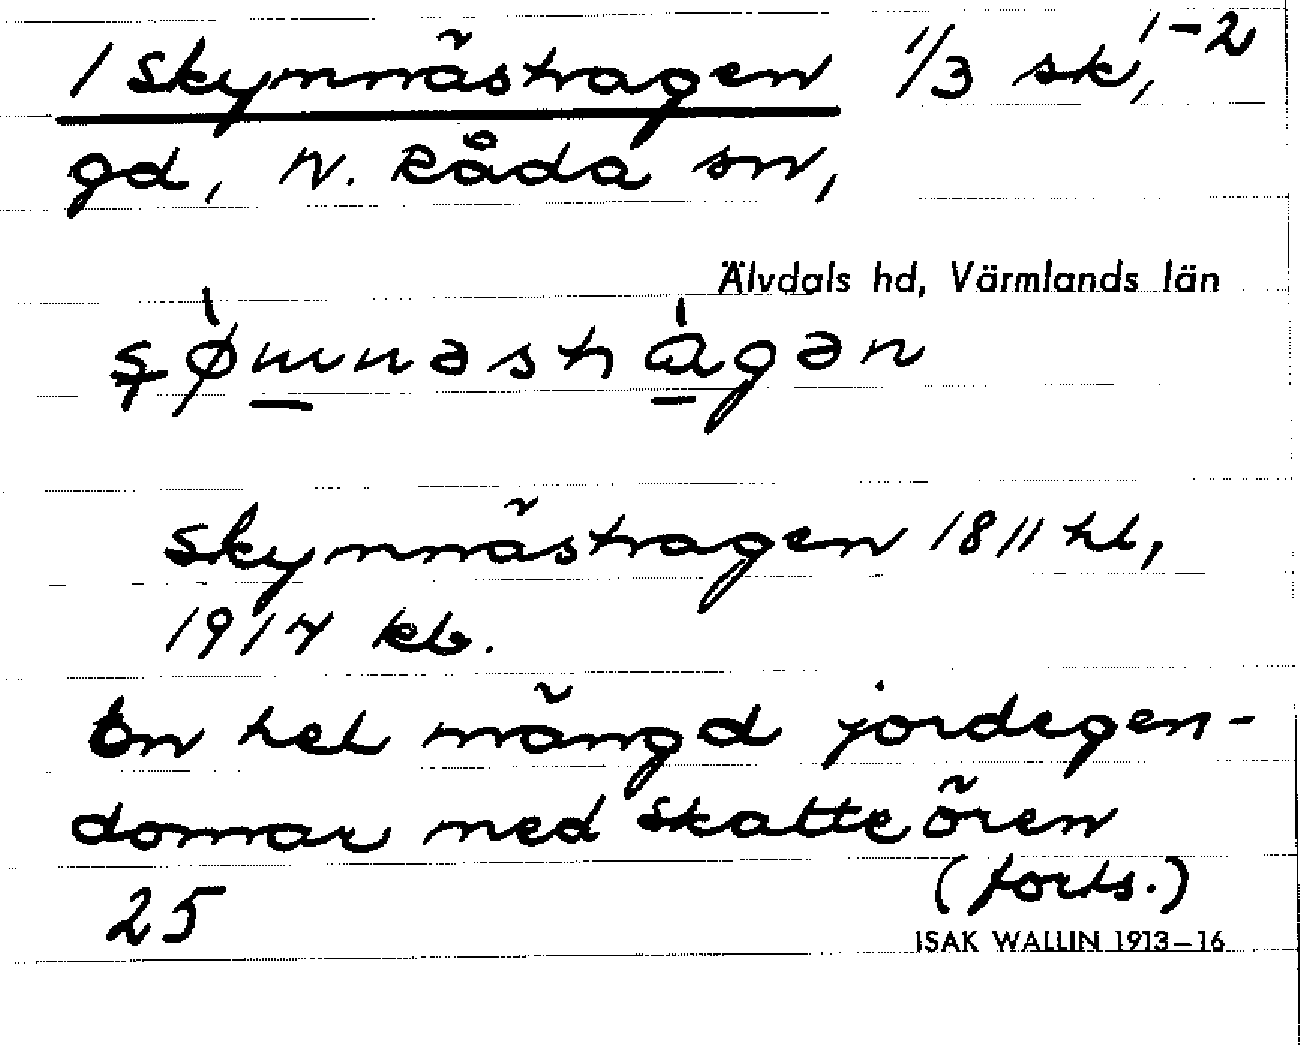 1 Skymnästragen 1/3 sk, 1-2
gd, N. Råda sn,
Älvdals hd, Värmlands län
Skymnästragen 1811 hl,
1917 kb.
En hel mängd jordegen-
domar med skatteören
(forts.)
25
ISAK WALLIN 1913–16